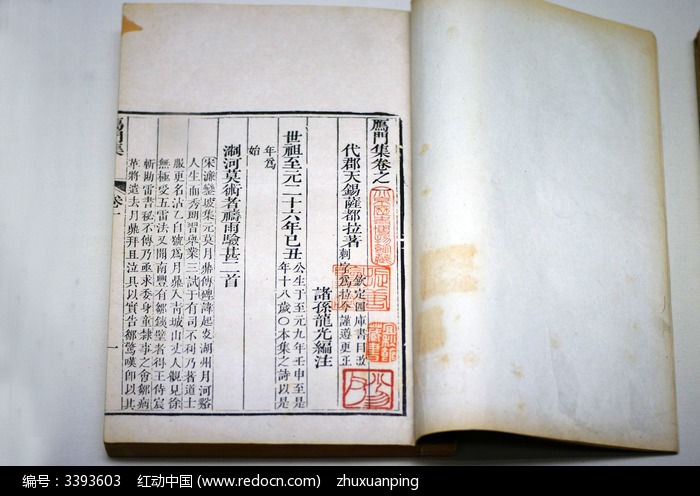 鴈門集卷之一
代郡天錫薩都拉著
欽定四庫書目改
刺字爲拉今謹遵更正
諸孫龍光編注
世祖至元二十六年己丑
公生于至元九年壬申至是
年十八歲〇本集之詩以是
年爲
始
澗河莫術者禱雨驗甚二首
宋濂鑾坡集元莫月鼎傳碑諱起炎湖州月河谿
人生而秀朗習舉業三試于有司不利乃著道士
服更名洞乙自號爲月鼎入靑城山丈人觀見徐
無極受五雷法又聞南豐有鄒鐵壁者得王侍宸
斬勘雷書秘不傳乃亟求委身童隸事之會鄒病
革將遣去月鼎拜且泣具以實告鄒驚嘆即以其
鴈門集
卷一
一
编号：3393603 红动中国 (www.redocn.com) zhuxuanping